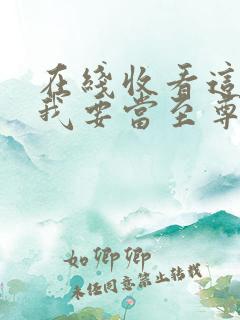 在綫收看這
我要當至尊
如卿卿
未经同意禁止转载